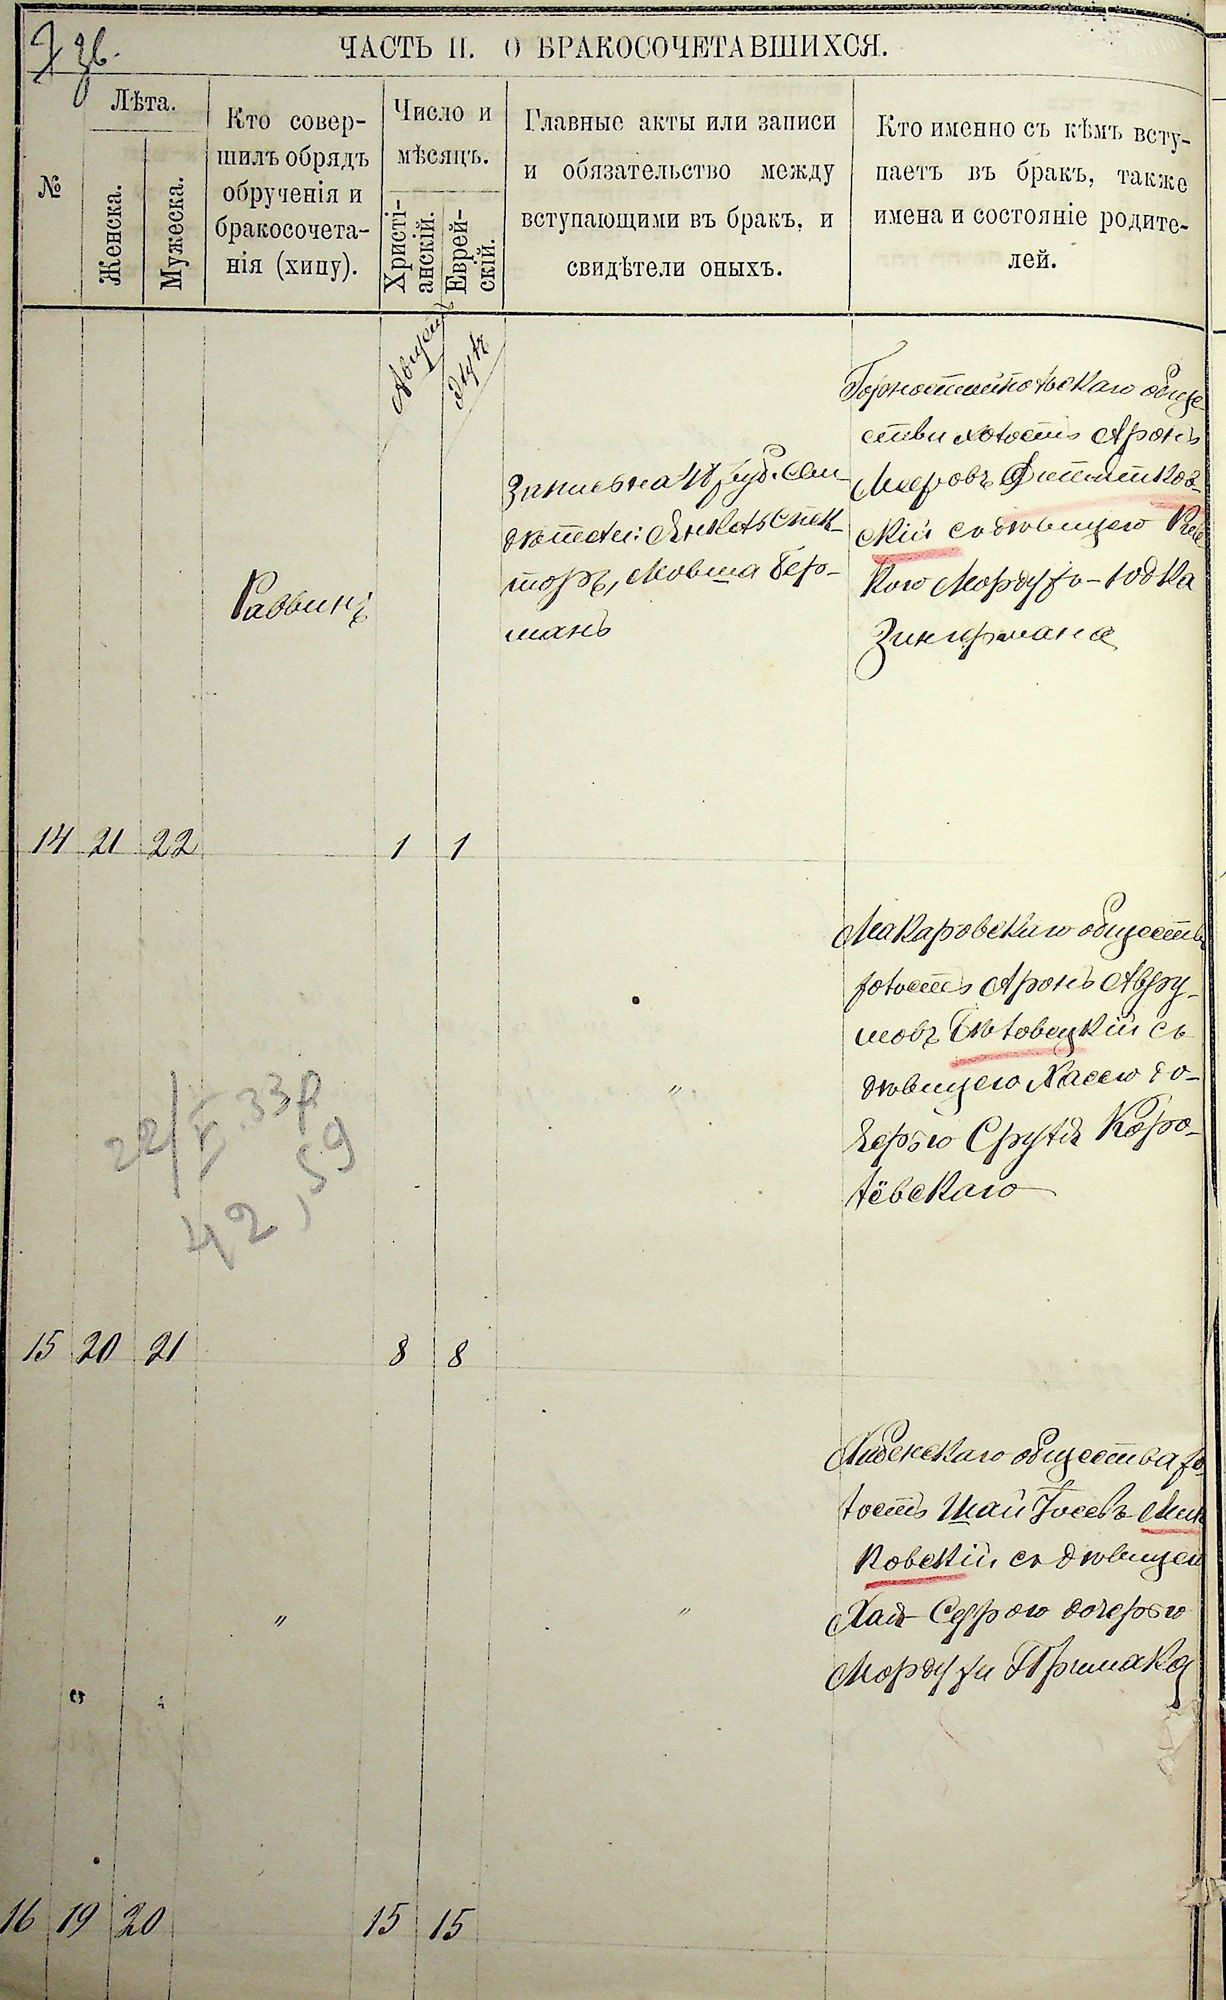 ЧАСТЬ II. О БРАКОСОЧЕТАВШИХСЯ.
№
Лѣта.
Женска.
Мужеска.
Кто совер-
шилъ обрядъ
обрученія и
бракосочета-
нія (хипу).
Число и
мѣсяцъ.
Христі-
анскій.
Еврей-
скій.
Главные акты или записи
и обязательство между
вступающими въ бракъ, и
свидѣтели оныхъ.
Кто именно съ кѣмъ всту-
паетъ въ бракъ, также
имена и состояніе родите-
лей.
Августъ
Элулъ
14 21 22
Раввинъ
1 1
Запись на 48 руб. Сви
дѣтели: Янкель Спек-
торъ, Мовша Бер-
манъ
Горностайпольскаго обще
ства холостъ Аронъ
Мееровъ
скій съ дѣвицею
Мордухъ-Юдка
Зингермана
22/V 33р
42,59
15 20 21
8 8
"
Макаровскаго обществ
холостъ Аронъ Авру-
мовъ Бѣловецкій съ
дѣвицею Хасею до-
черью Сруля Коро-
лёвскаго
16 19 20
"
15 15
"
общества хо
лостъ Шая Іосевъ Мин
ковскій съ дѣвицею
Хая Суррою дочерью
Мордухи Примака